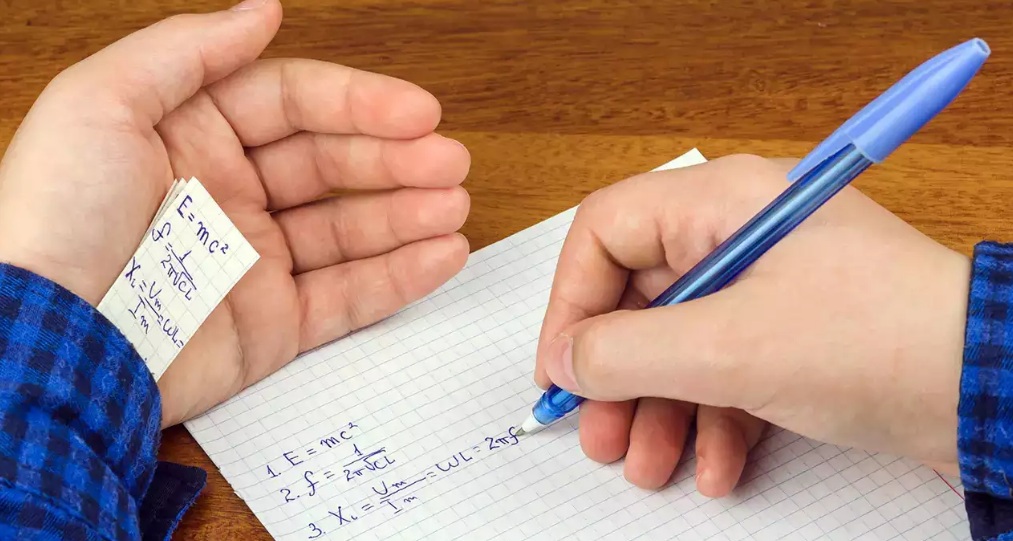 E = mc²
f = 1/2π√CL
X_L = U_m/I_m = WL =
1. E = mc²
2. f = 1/2π√CL
3. X_L = U_m/I_m = WL = 2πf